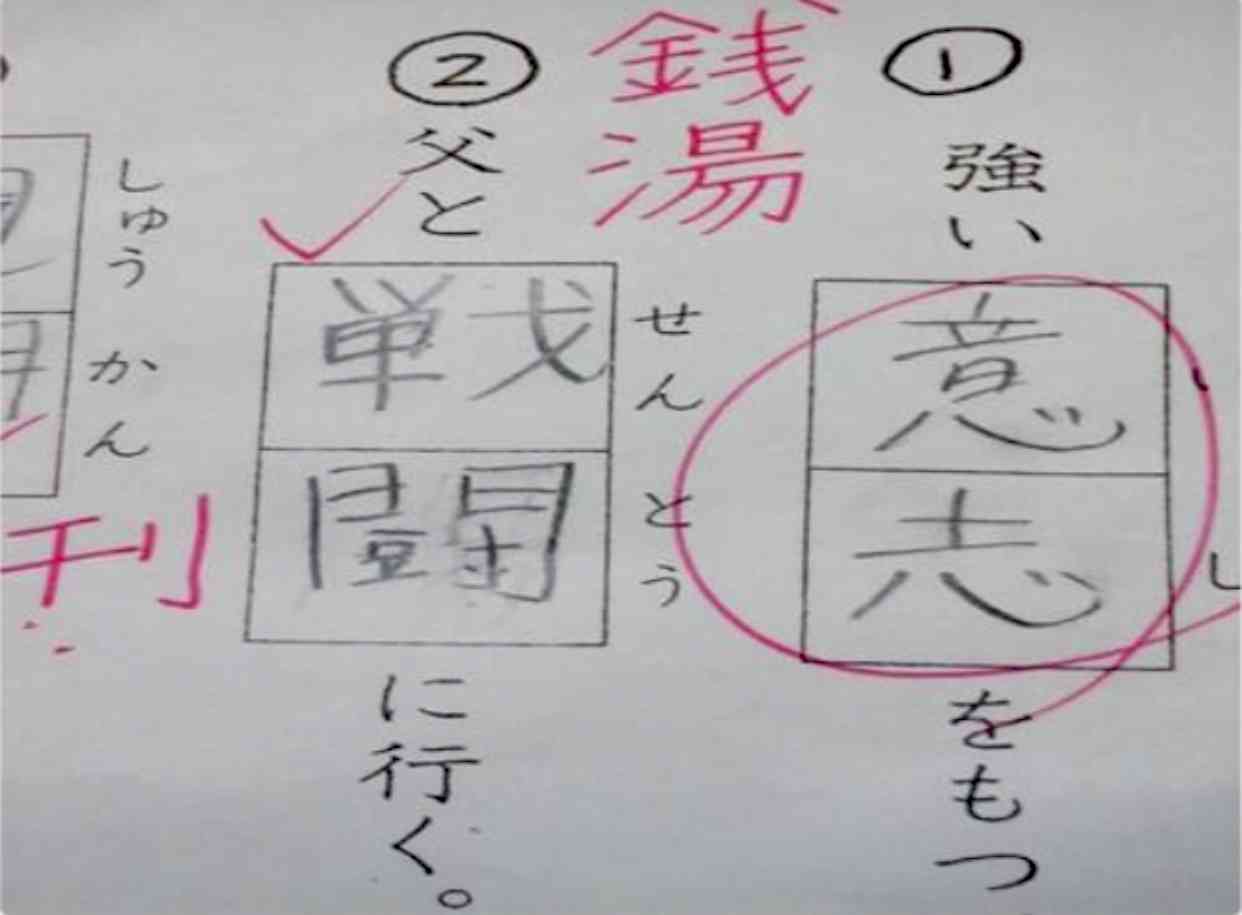 ①
強い
意志
し
をもつ
銭湯
②
父と
戦闘
せんとう
に行く。
しゅうかん
刊